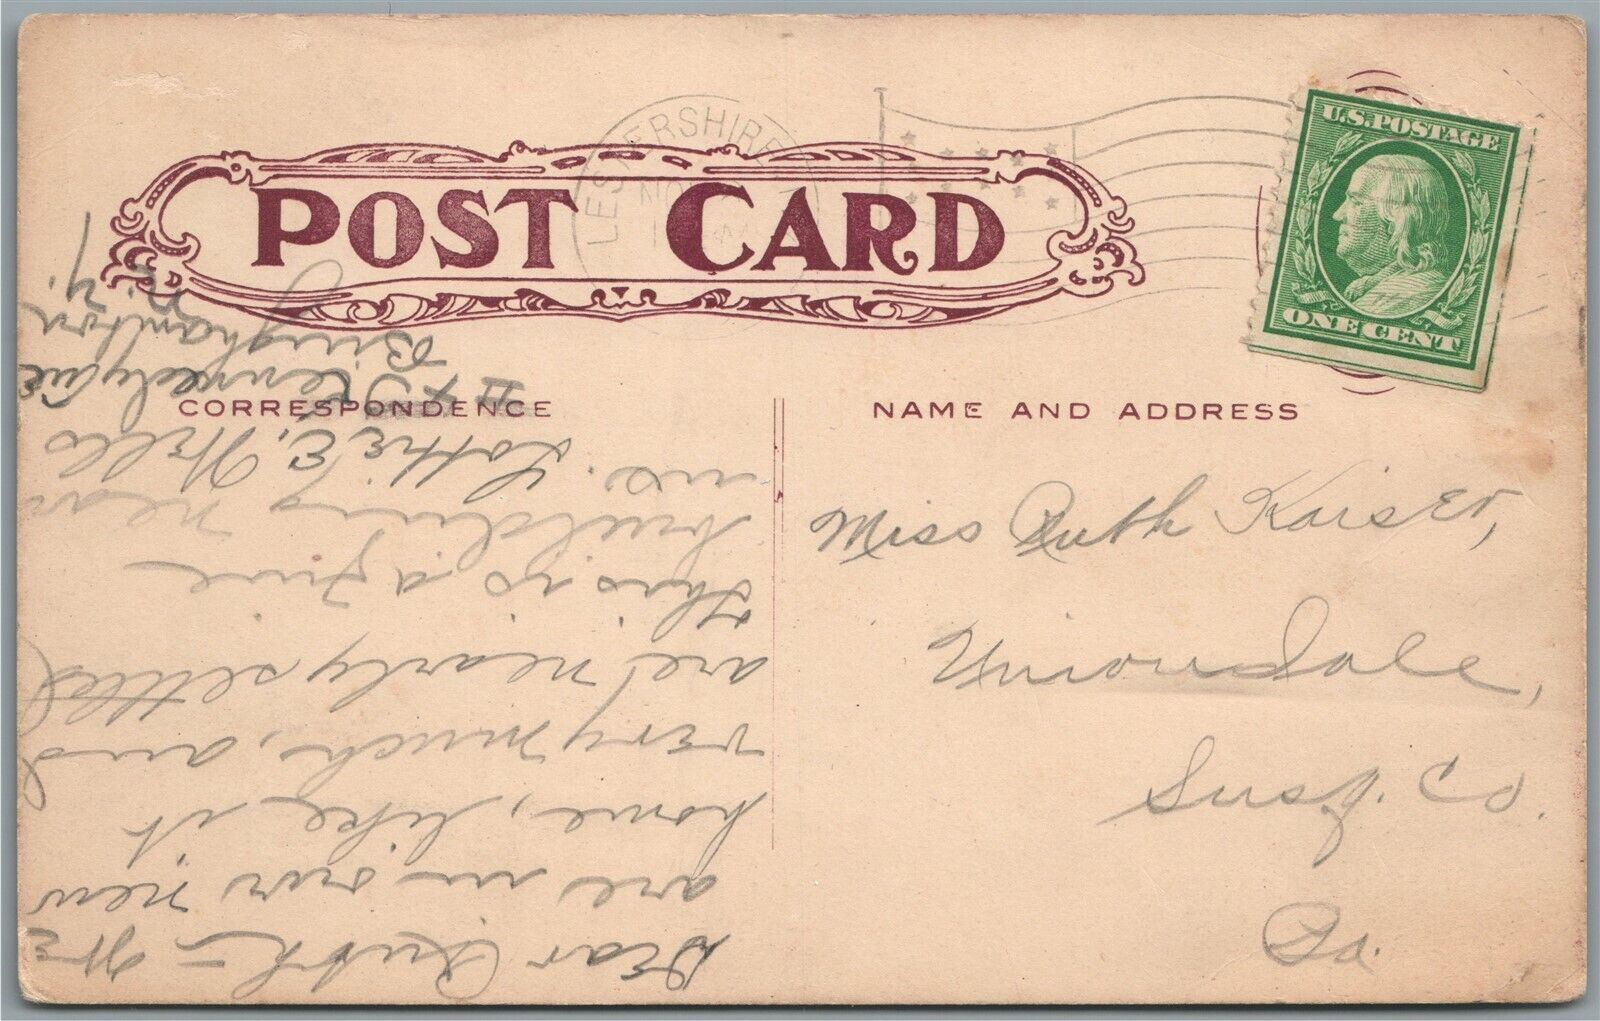 POST CARD
LESTERSHIRE
NOV
U.S. POSTAGE
ONE CENT
CORRESPONDENCE
NAME AND ADDRESS
Miss Ruth Kaiser,
Uniondale,
Susq. Co.
Pa.
Dear Ruth – We
are in our new
home, like it
very much, and
are nearly settled
This is a fine
building near
us. Lottie E. Wells
Kennedy Ave
Binghamton
N. Y.